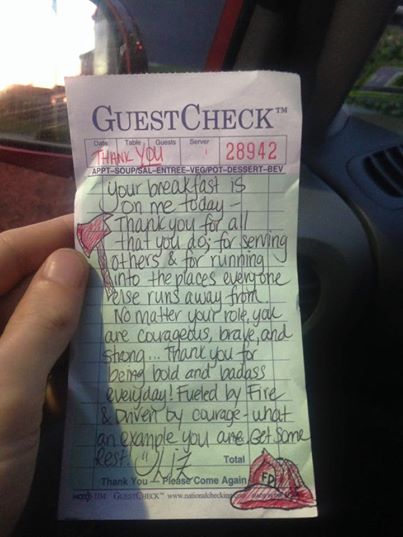 GUESTCHECK™
Date Table Guests Server
THANK YOU 28942
APPT-SOUP/SAL-ENTREE-VEG/POT-DESSERT-BEV
your breakfast is
on me today -
Thank you for all
that you do; for serving
others & for running
into the places everyone
else runs away from.
No matter your role, you
are courageous, brave, and
strong... Thank you for
being bold and badass
everyday! Fueled by Fire
& Driven by courage - what
an example you are. Get some
Rest! Liz
Total
Thank You — Please Come Again
FD
GUESTCHECK™ www.nationalchecking